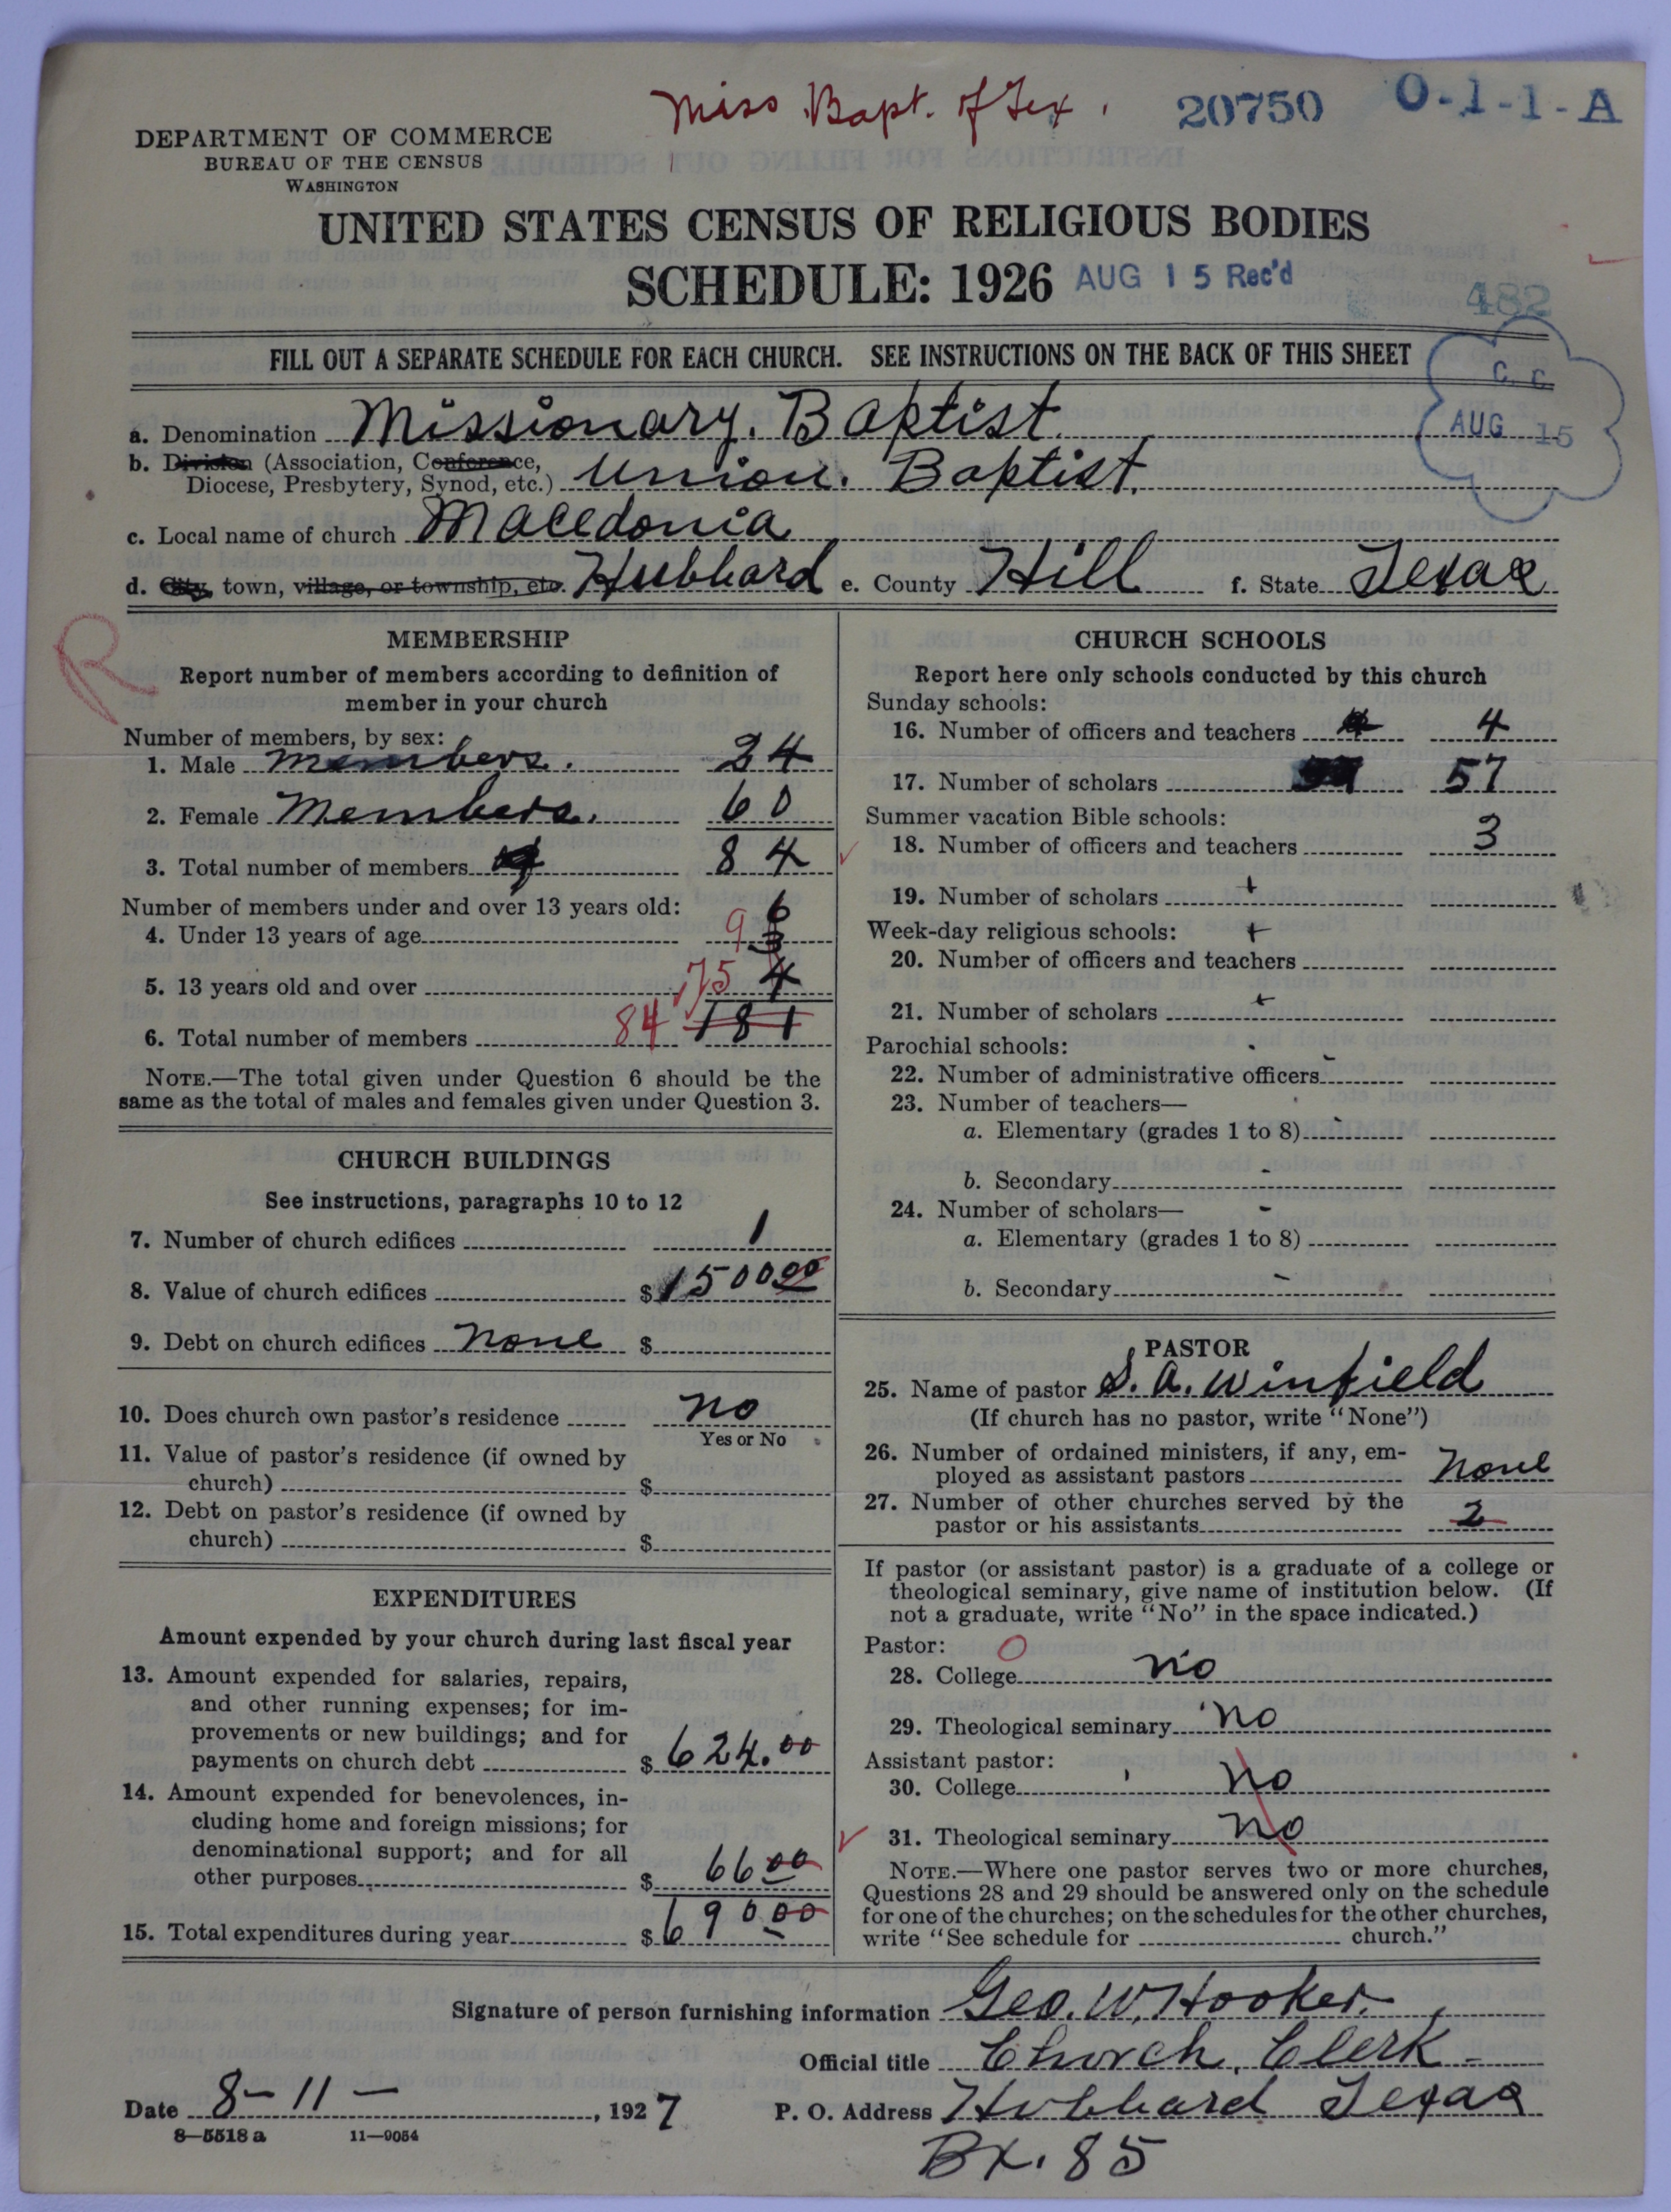 Miss Bapt. of Tex. 20750 O-1-1-A
DEPARTMENT OF COMMERCE
BUREAU OF THE CENSUS
WASHINGTON
UNITED STATES CENSUS OF RELIGIOUS BODIES
SCHEDULE: 1926 AUG 15 Rec'd
482
FILL OUT A SEPARATE SCHEDULE FOR EACH CHURCH. SEE INSTRUCTIONS ON THE BACK OF THIS SHEET
C. C.
AUG 15
a. Denomination Missionary. Baptist.
b. Division (Association, Conference,
Diocese, Presbytery, Synod, etc.) Union. Baptist.
c. Local name of church Macedonia
d. City, town, village, or township, etc. Hubbard e. County Hill f. State Texas
R
MEMBERSHIP
Report number of members according to definition of
member in your church
Number of members, by sex:
1. Male Members. 24
2. Female Members. 60
3. Total number of members 84
Number of members under and over 13 years old:
4. Under 13 years of age 9 6 3
5. 13 years old and over 75 4
6. Total number of members 84 181
NOTE.—The total given under Question 6 should be the
same as the total of males and females given under Question 3.
CHURCH BUILDINGS
See instructions, paragraphs 10 to 12
7. Number of church edifices 1
8. Value of church edifices $1500 00
9. Debt on church edifices None $
10. Does church own pastor's residence No
Yes or No
11. Value of pastor's residence (if owned by
church) $
12. Debt on pastor's residence (if owned by
church) $
EXPENDITURES
Amount expended by your church during last fiscal year
13. Amount expended for salaries, repairs,
and other running expenses; for im-
provements or new buildings; and for
payments on church debt $ 624.00
14. Amount expended for benevolences, in-
cluding home and foreign missions; for
denominational support; and for all
other purposes $ 66 00
15. Total expenditures during year $ 690 00
CHURCH SCHOOLS
Report here only schools conducted by this church
Sunday schools:
16. Number of officers and teachers 4 4
17. Number of scholars 57
Summer vacation Bible schools:
18. Number of officers and teachers 3
19. Number of scholars +
Week-day religious schools: +
20. Number of officers and teachers
21. Number of scholars +
Parochial schools:
22. Number of administrative officers -
23. Number of teachers—
a. Elementary (grades 1 to 8)
b. Secondary -
24. Number of scholars— -
a. Elementary (grades 1 to 8)
b. Secondary -
PASTOR
25. Name of pastor S. A. Winfield
(If church has no pastor, write "None")
26. Number of ordained ministers, if any, em-
ployed as assistant pastors None
27. Number of other churches served by the
pastor or his assistants 2
If pastor (or assistant pastor) is a graduate of a college or
theological seminary, give name of institution below. (If
not a graduate, write "No" in the space indicated.)
Pastor: O
28. College No
29. Theological seminary No
Assistant pastor:
30. College No
31. Theological seminary No
NOTE.—Where one pastor serves two or more churches,
Questions 28 and 29 should be answered only on the schedule
for one of the churches; on the schedules for the other churches,
write "See schedule for church."
Signature of person furnishing information Geo. W. Hooker.
Official title Church. Clerk
Date 8-11-, 1927 P. O. Address Hubbard Texas
8—5518 a 11—9054
Bx. 85